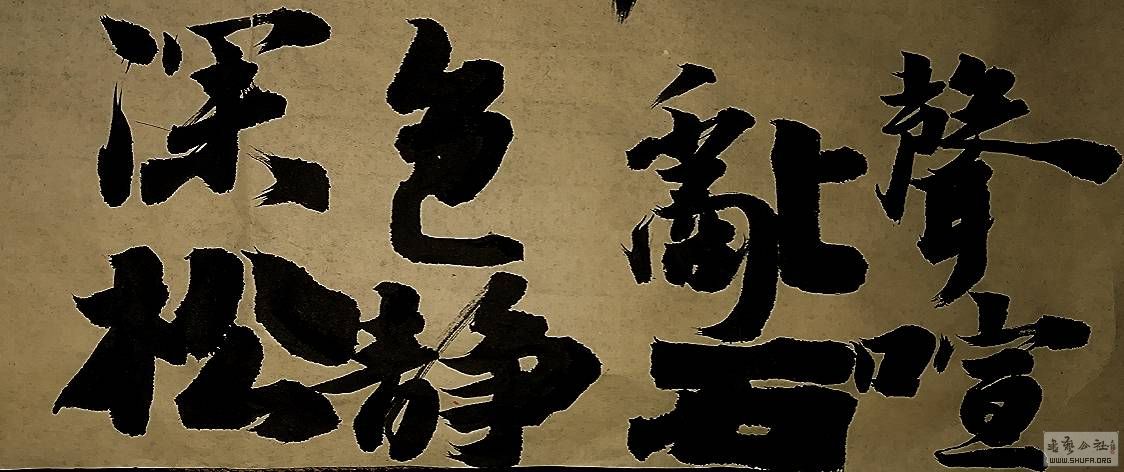 聲喧
亂石
色靜
深松
書藝公社
WWW.SHUFA.ORG